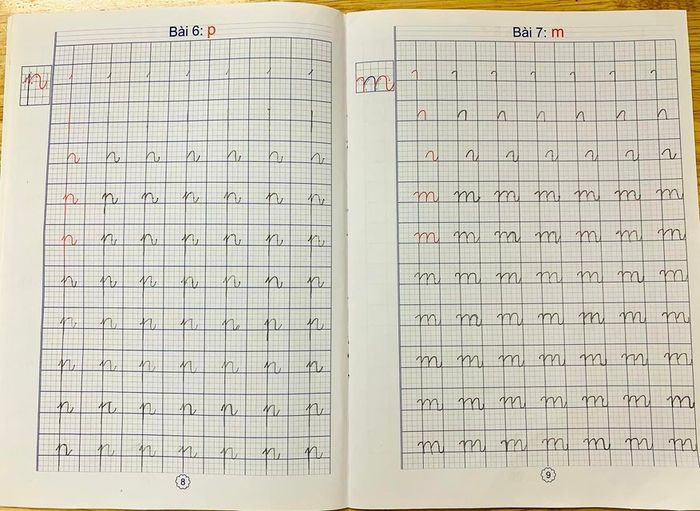 Bài 6: p
p
p p p p p p p
p p p p p p p
p p p p p p p
p p p p p p p
p p p p p p p
p p p p p p p
p p p p p p p
8
Bài 7: m
m
m m m m m m m
m m m m m m m
m m m m m m m
m m m m m m m
m m m m m m m
m m m m m m m
m m m m m m m
9